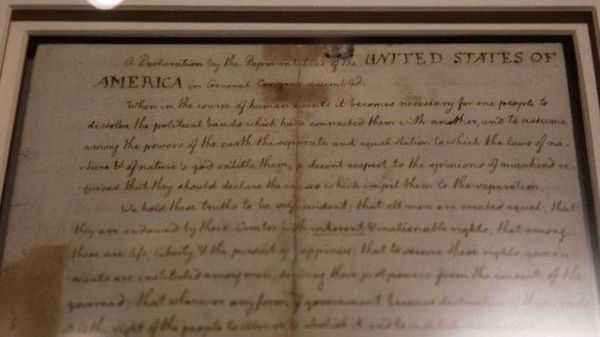 A Declaration by the Representatives of the UNITED STATES OF
AMERICA in General Congress assembled.
When in the course of human events it becomes necessary for one people to
dissolve the political bands which have connected them with another, and to assume
among the powers of the earth the separate and equal station to which the laws of na-
ture & of nature's god entitle them, a decent respect to the opinions of mankind re-
quires that they should declare the causes which impel them to the separation.
We hold these truths to be self evident; that all men are created equal; that
they are endowed by their Creator with inherent & inalienable rights; that among
these are life, liberty, & the pursuit of happiness; that to secure these rights govern-
ments are instituted among men, deriving their just powers from the consent of the
governed; that whenever any form of government becomes destructive of these
it is the right of the people to alter or to abolish it and to institute